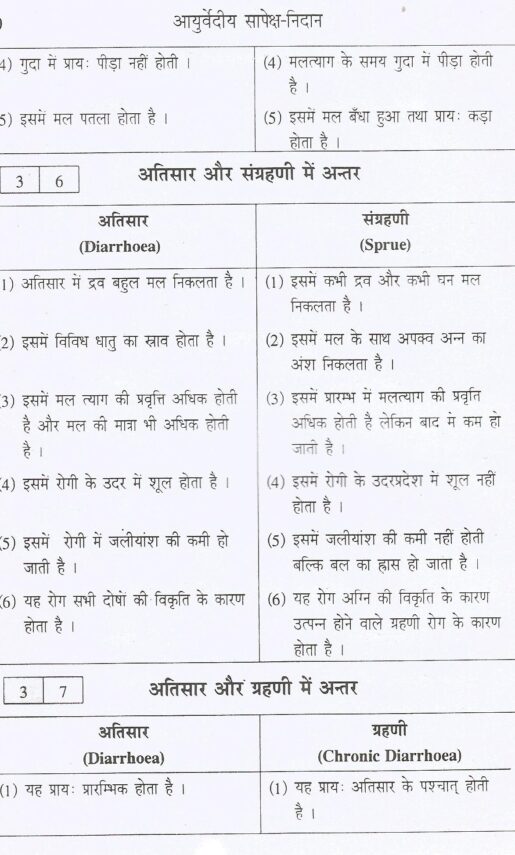 आयुर्वेदीय सापेक्ष-निदान
4) गुदा में प्रायः पीड़ा नहीं होती ।
5) इसमें मल पतला होता है ।
(4) मलत्याग के समय गुदा में पीड़ा होती
है ।
(5) इसमें मल बँधा हुआ तथा प्रायः कड़ा
होता है ।
3 6
अतिसार और संग्रहणी में अन्तर
अतिसार
(Diarrhoea)
संग्रहणी
(Sprue)
1) अतिसार में द्रव बहुल मल निकलता है ।
(1) इसमें कभी द्रव और कभी घन मल
निकलता है ।
(2) इसमें विविध धातु का स्राव होता है ।
(2) इसमें मल के साथ अपक्व अन्न का
अंश निकलता है ।
(3) इसमें मल त्याग की प्रवृत्ति अधिक होती
है और मल की मात्रा भी अधिक होती
है ।
(3) इसमें प्रारम्भ में मलत्याग की प्रवृति
अधिक होती है लेकिन बाद में कम हो
जाती है ।
(4) इसमें रोगी के उदर में शूल होता है ।
(4) इसमें रोगी के उदरप्रदेश में शूल नहीं
होता है ।
(5) इसमें रोगी में जलीयांश की कमी हो
जाती है ।
(5) इसमें जलीयांश की कमी नहीं होती
बल्कि बल का ह्रास हो जाता है ।
(6) यह रोग सभी दोषों की विकृति के कारण
होता है ।
(6) यह रोग अग्नि की विकृति के कारण
उत्पन्न होने वाले ग्रहणी रोग के कारण
होता है ।
3 7
अतिसार और ग्रहणी में अन्तर
अतिसार
(Diarrhoea)
ग्रहणी
(Chronic Diarrhoea)
(1) यह प्रायः प्रारम्भिक होता है ।
(1) यह प्रायः अतिसार के पश्चात् होती
है ।